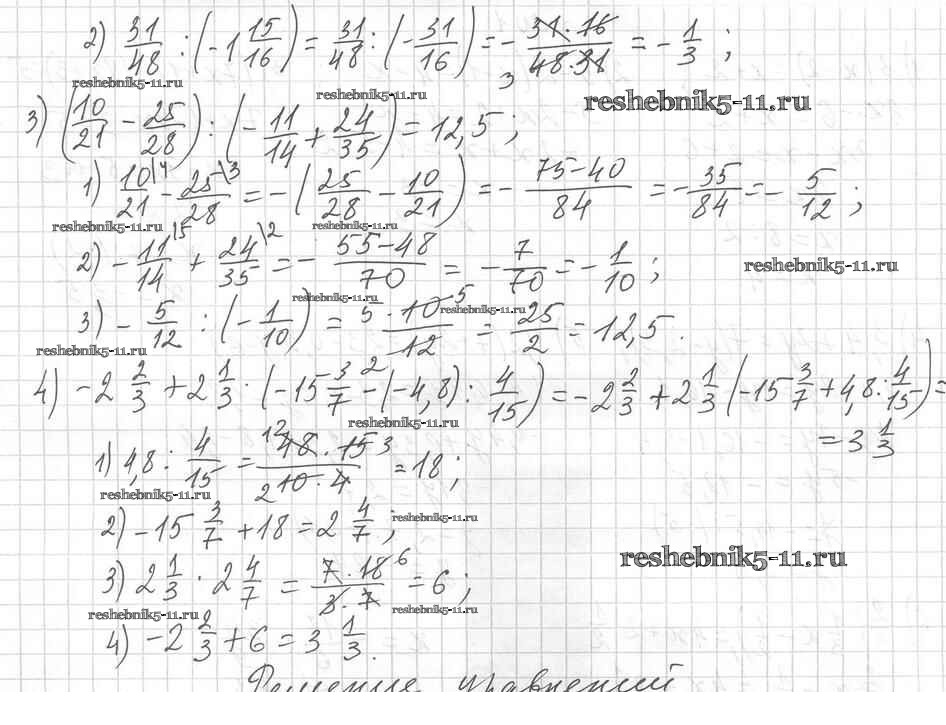 2) 31/48 : (-1 15/16) = 31/48 : (-31/16) = - 31·16/48·31 3 = - 1/3 ;
reshebnik5-11.ru reshebnik5-11.ru reshebnik5-11.ru
3) (10/21 - 25/28) : (-11/14 + 24/35) = 12,5 ;
1) 10/21 \4 - 25/28 \3 = -(25/28 - 10/21) = - 75-40/84 = - 35/84 = - 5/12 ;
reshebnik5-11.ru reshebnik5-11.ru
2) - 11/14 \5 + 24/35 \2 = - 55-48/70 = - 7/70 = - 1/10 ;
reshebnik5-11.ru
reshebnik5-11.ru reshebnik5-11.ru
3) - 5/12 : (- 1/10) = 5·10 5/12 = 25/2 = 12,5 .
reshebnik5-11.ru
4) -2 2/3 + 2 1/3 · (-15 3/7 - (-4,8) : 4/15) = -2 2/3 + 2 1/3 (-15 3/7 + 4,8 : 4/15) =
reshebnik5-11.ru
= 3 1/3
1) 4,8 : 4/15 = 12 48·15 3/2 10·4 = 18 ;
reshebnik5-11.ru
2) -15 3/7 + 18 = 2 4/7 ;
reshebnik5-11.ru
reshebnik5-11.ru
3) 2 1/3 · 2 4/7 = 7·18 6/3·7 = 6 ;
reshebnik5-11.ru reshebnik5-11.ru
4) -2 2/3 + 6 = 3 1/3 .
Решения уравнений